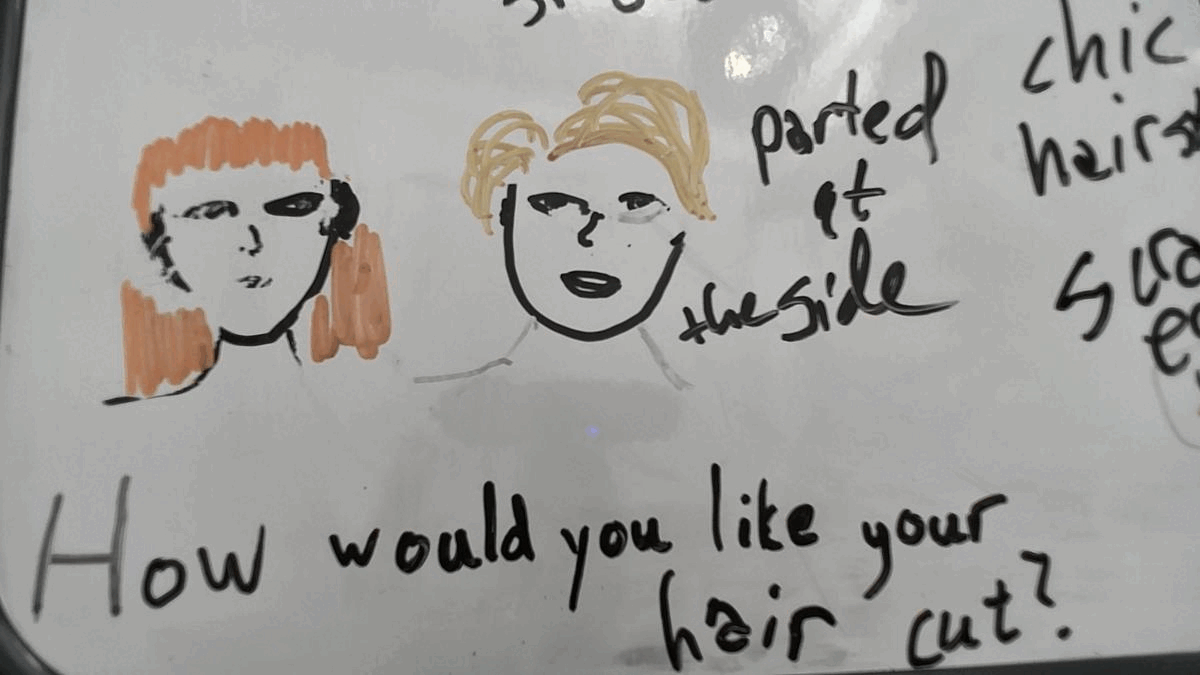 parted
at
the side
chic
How would you like your
hair cut?